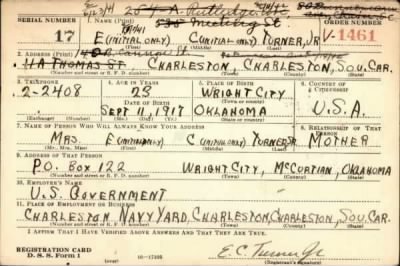 SERIAL NUMBER 1. NAME (Print) ORDER NUMBER
17 E (INITIAL ONLY) C (INITIAL ONLY) TURNER, JR V-1461
2. ADDRESS (Print)
11A THOMAS ST. CHARLESTON, CHARLESTON, SOU. CAR.
(Number and street or R. F. D. number) (Town) (County) (State)
3. TELEPHONE 4. AGE IN YEARS 5. PLACE OF BIRTH 6. COUNTRY OF CITIZENSHIP
2-2408 23 WRIGHT CITY
DATE OF BIRTH (Town or county)
SEPT 11, 1917 OKLAHOMA U.S.A.
(Mo.) (Day) (Yr.) (State or country)
7. NAME OF PERSON WHO WILL ALWAYS KNOW YOUR ADDRESS 8. RELATIONSHIP OF THAT PERSON
MRS. E (INITIAL ONLY) C (INITIAL ONLY) TURNER SR. MOTHER
(Mr., Mrs., Miss) (First) (Middle) (Last)
9. ADDRESS OF THAT PERSON
P.O. BOX 122 WRIGHT CITY, MCCURTIAN, OKLAHOMA
(Number and street or R. F. D. number) (Town) (County) (State)
10. EMPLOYER'S NAME
U.S. GOVERNMENT
11. PLACE OF EMPLOYMENT OR BUSINESS
CHARLESTON NAVY YARD, CHARLESTON, CHARLESTON, SOU. CAR.
(Number and street or R. F. D. number) (Town) (County) (State)
I AFFIRM THAT I HAVE VERIFIED ABOVE ANSWERS AND THAT THEY ARE TRUE.
REGISTRATION CARD
D. S. S. Form 1 16-17105 E.C. Turner Jr
(Registrant's signature)